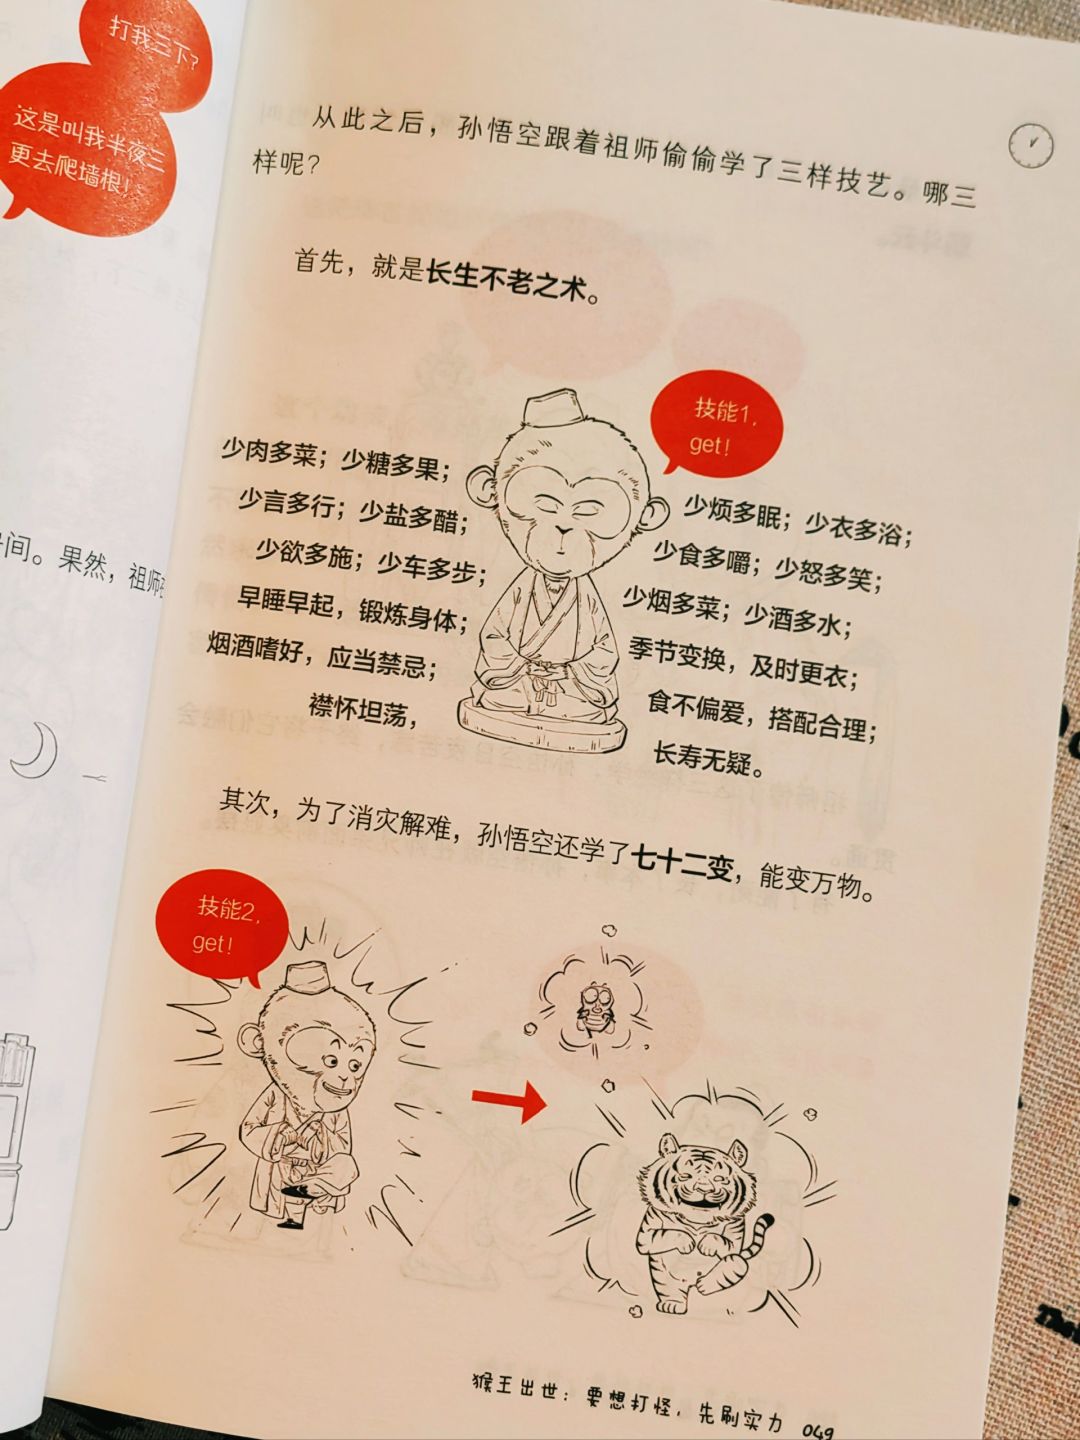 打我三下？
这是叫我半夜三
更去爬墙根！
间。果然，祖师
从此之后，孙悟空跟着祖师偷偷学了三样技艺。哪三
样呢？
首先，就是长生不老之术。
技能1，
get！
少肉多菜；少糖多果；
少言多行；少盐多醋；
少欲多施；少车多步；
早睡早起，锻炼身体；
烟酒嗜好，应当禁忌；
襟怀坦荡，
少烦多眠；少衣多浴；
少食多嚼；少怒多笑；
少烟多菜；少酒多水；
季节变换，及时更衣；
食不偏爱，搭配合理；
长寿无疑。
其次，为了消灾解难，孙悟空还学了七十二变，能变万物。
技能2，
get！
猴王出世：要想打怪，先刷实力 049